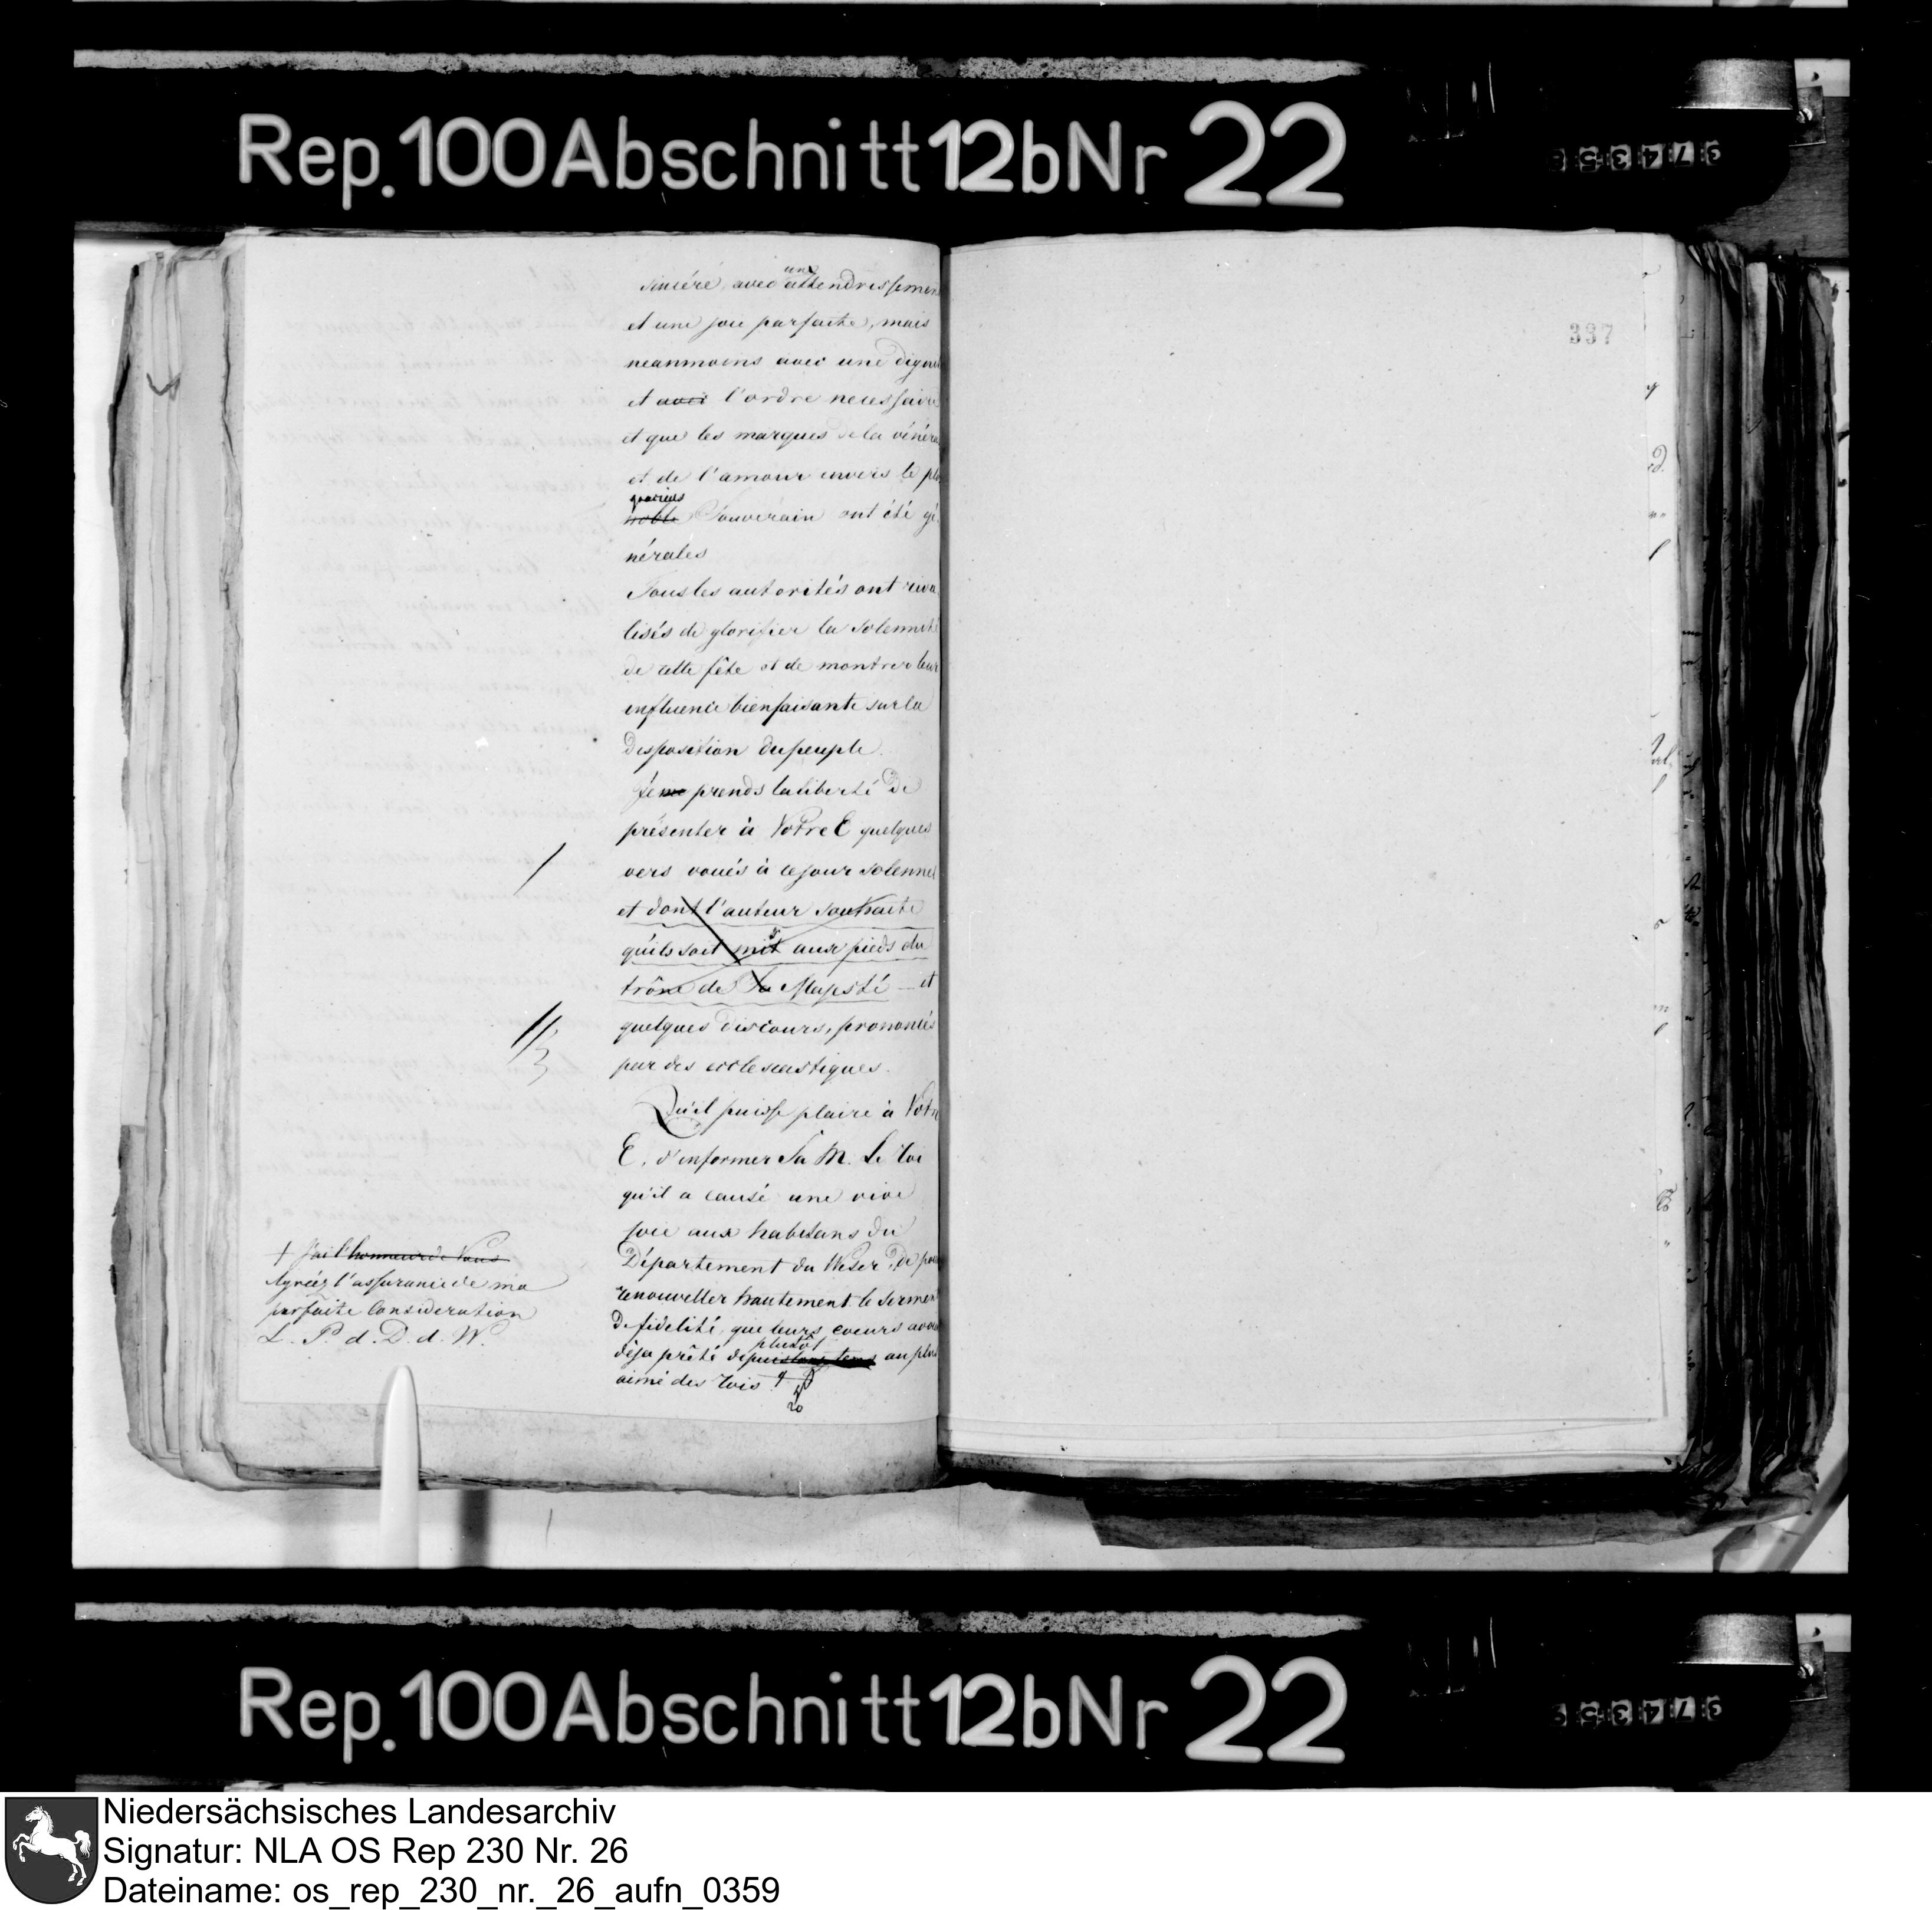 Rep. 100 Abschnitt 12b Nr 22
974358
337
sincére, avec un attendrissemen
et une joie parfaite, mais
neanmoins avec une digni
et avec l'ordre necessaire
et que les marques de la vénéra
et de l'amour envers le plu
gracieus
noble Souverain ont été gé
nérales
Tous les autorités ont riva
lisés de glorifier la solemnité
de cette fête et de montrer leur
influence bienfaisante sur la
disposition du peuple.
Je me prends la liberté de
présenter à Votre E quelques
vers voués à ce jour solennel
et dont l'auteur souhaite
qu'ils soit mit aux pieds du
trône de Sa Majesté — et
quelques discours, prononcés
par des ecclesiastiques.
Qu'il puisse plaire à Votre
E. d'informer Sa M. Le roi
qu'il a causé une vive
joie aux habitans du
Département du Weser, de pou
renouveller hautement le sermen
de fidelité, que leurs coeurs avoi
plutôt
déja prêté depuis long tems au plus
aimé des rois.
+ J'ai l'honneur de Vous
Agréez l'assurance de ma
parfaite Consideration
L. P. d. D. d. W.
Rep. 100 Abschnitt 12b Nr 22
Niedersächsisches Landesarchiv
Signatur: NLA OS Rep 230 Nr. 26
Dateiname: os_rep_230_nr._26_aufn_0359